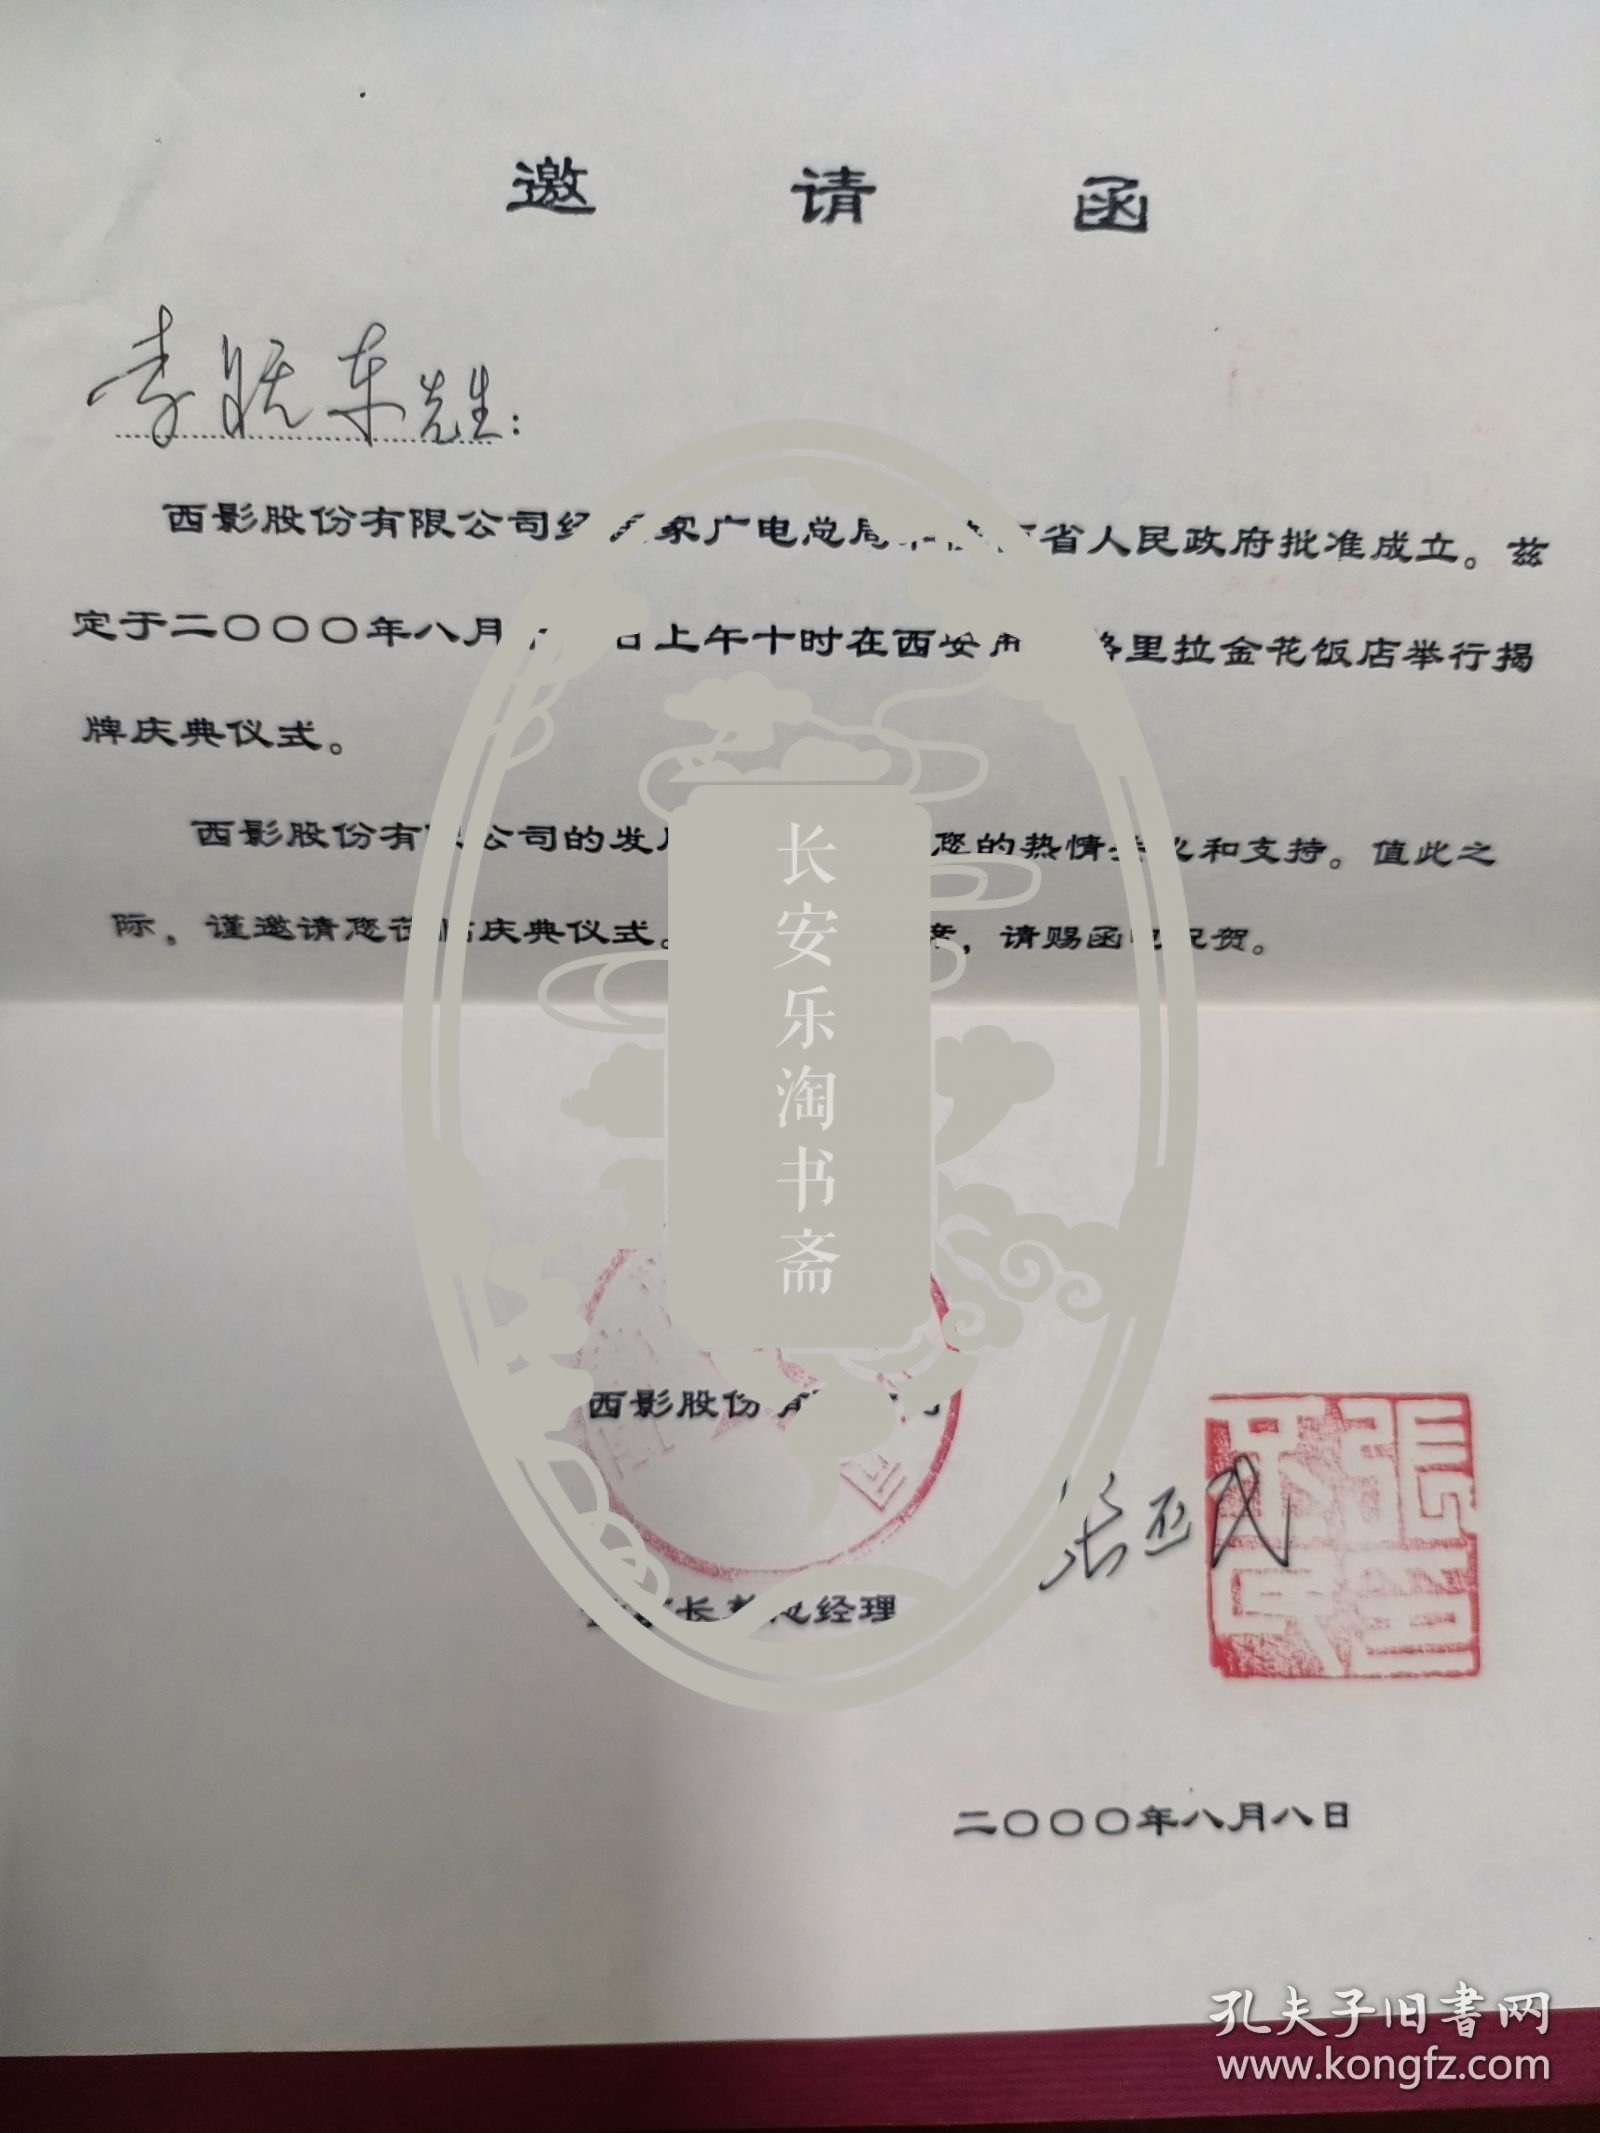 邀请函
李 东先生：
西影股份有限公司经国家广电总局 省人民政府批准成立。兹
定于二〇〇〇年八月 日上午十时在西安 格里拉金花饭店举行揭
牌庆典仪式。
西影股份有限公司的发 您的热情 和支持。值此之
际，谨邀请您莅临庆典仪式。 席，请赐函电祝贺。
西影股份有
长兼总经理
张丕民
張丕民
二〇〇〇年八月八日
长安乐淘书斋
孔夫子旧书网
www.kongfz.com